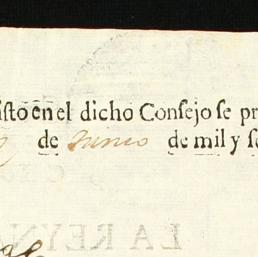 isto en el dicho Consejo se pr
de Junio de mil y se
LA REYN